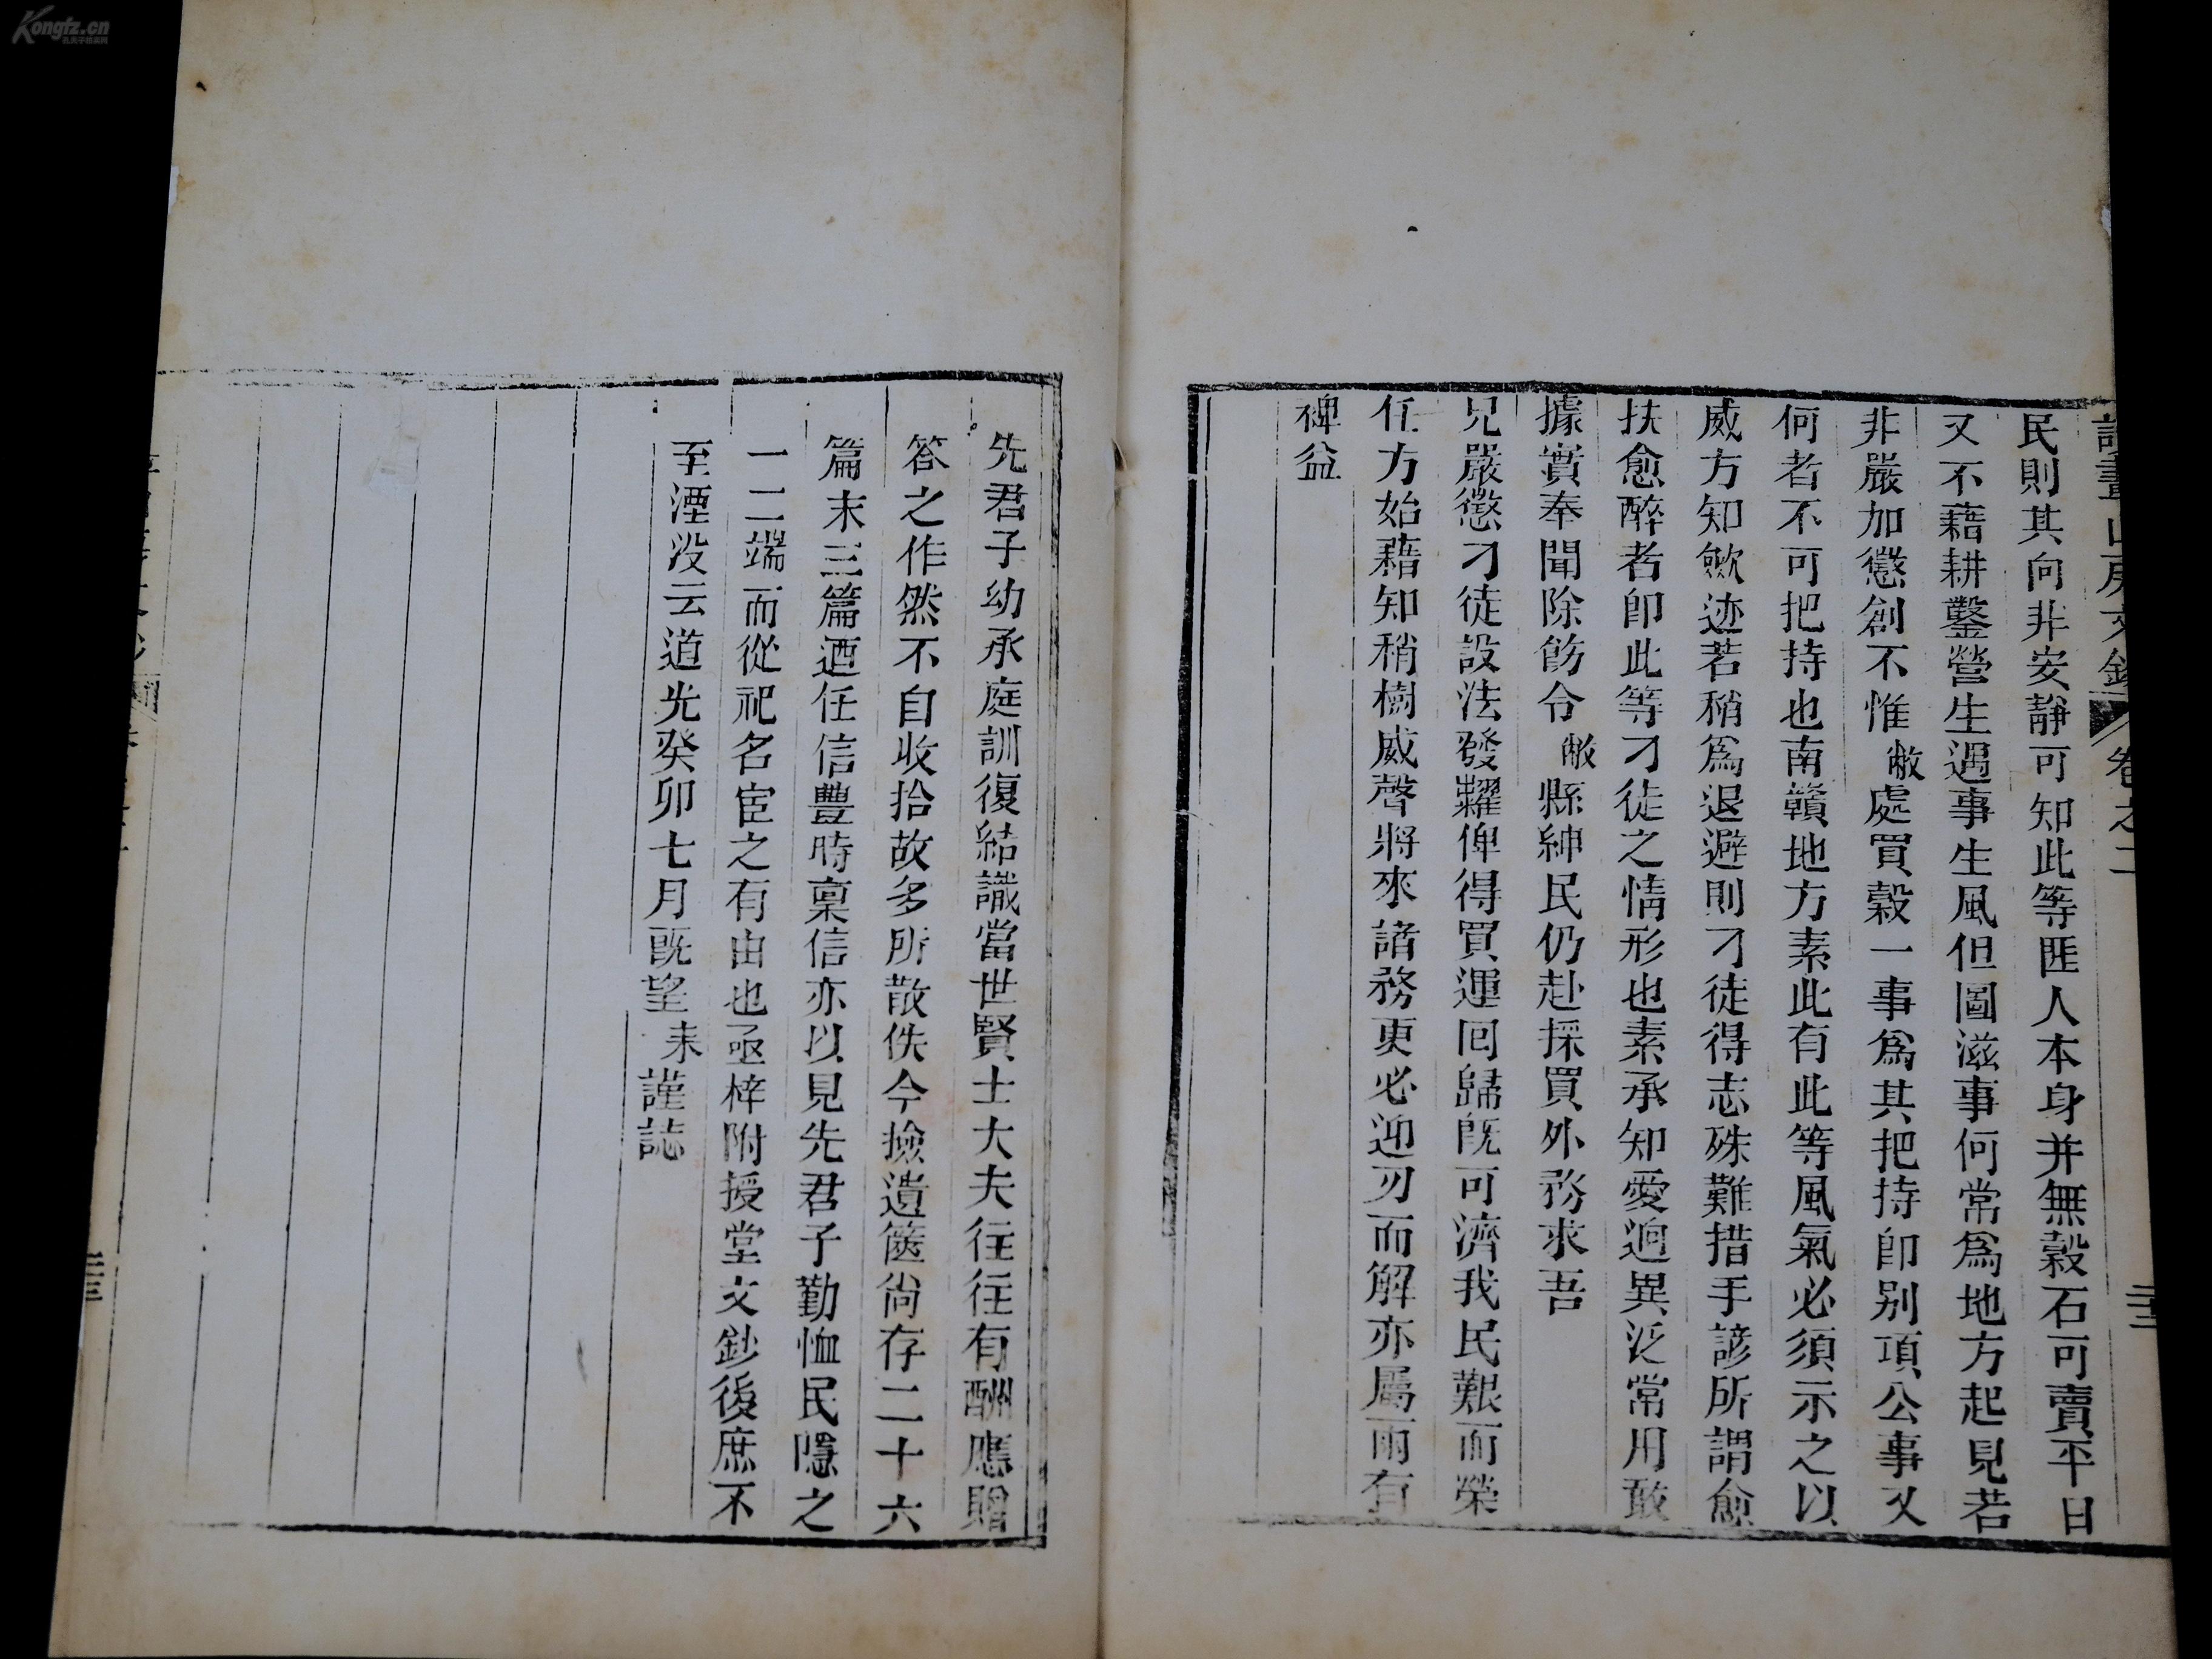 Kongfz.cn
孔夫子舊書网
讀畫山房文鈔 卷之二
民則其向非安靜可知此等匪人本身并無穀石可賣平日
又不藉耕鑿營生遇事生風但圖滋事何常爲地方起見若
非嚴加懲創不惟敝處買穀一事爲其把持卽别項公事又
何者不可把持也南贛地方素此有此等風氣必須示之以
威方知斂迹若稍爲退避則刁徒得志殊難措手諺所謂愈
扶愈醉者卽此等刁徒之情形也素承知愛迥異泛常用敢
據實奉聞除飭令敝縣紳民仍赴採買外務求吾
兄嚴懲刁徒設法發糶俾得買運囘歸旣可濟我民艱而榮
任方始藉知稍樹威聲將來諸務更必迎刃而解亦屬兩有
裨益
先君子幼承庭訓復結識當世賢士大夫往往有酬應贈
答之作然不自收拾故多所散佚今撿遺篋尙存二十六
篇末三篇迺任信豐時稟信亦以見先君子勤恤民隱之
一二端而從祀名宦之有由也亟梓附授堂文鈔後庶不
至湮没云道光癸卯七月旣望耒謹誌